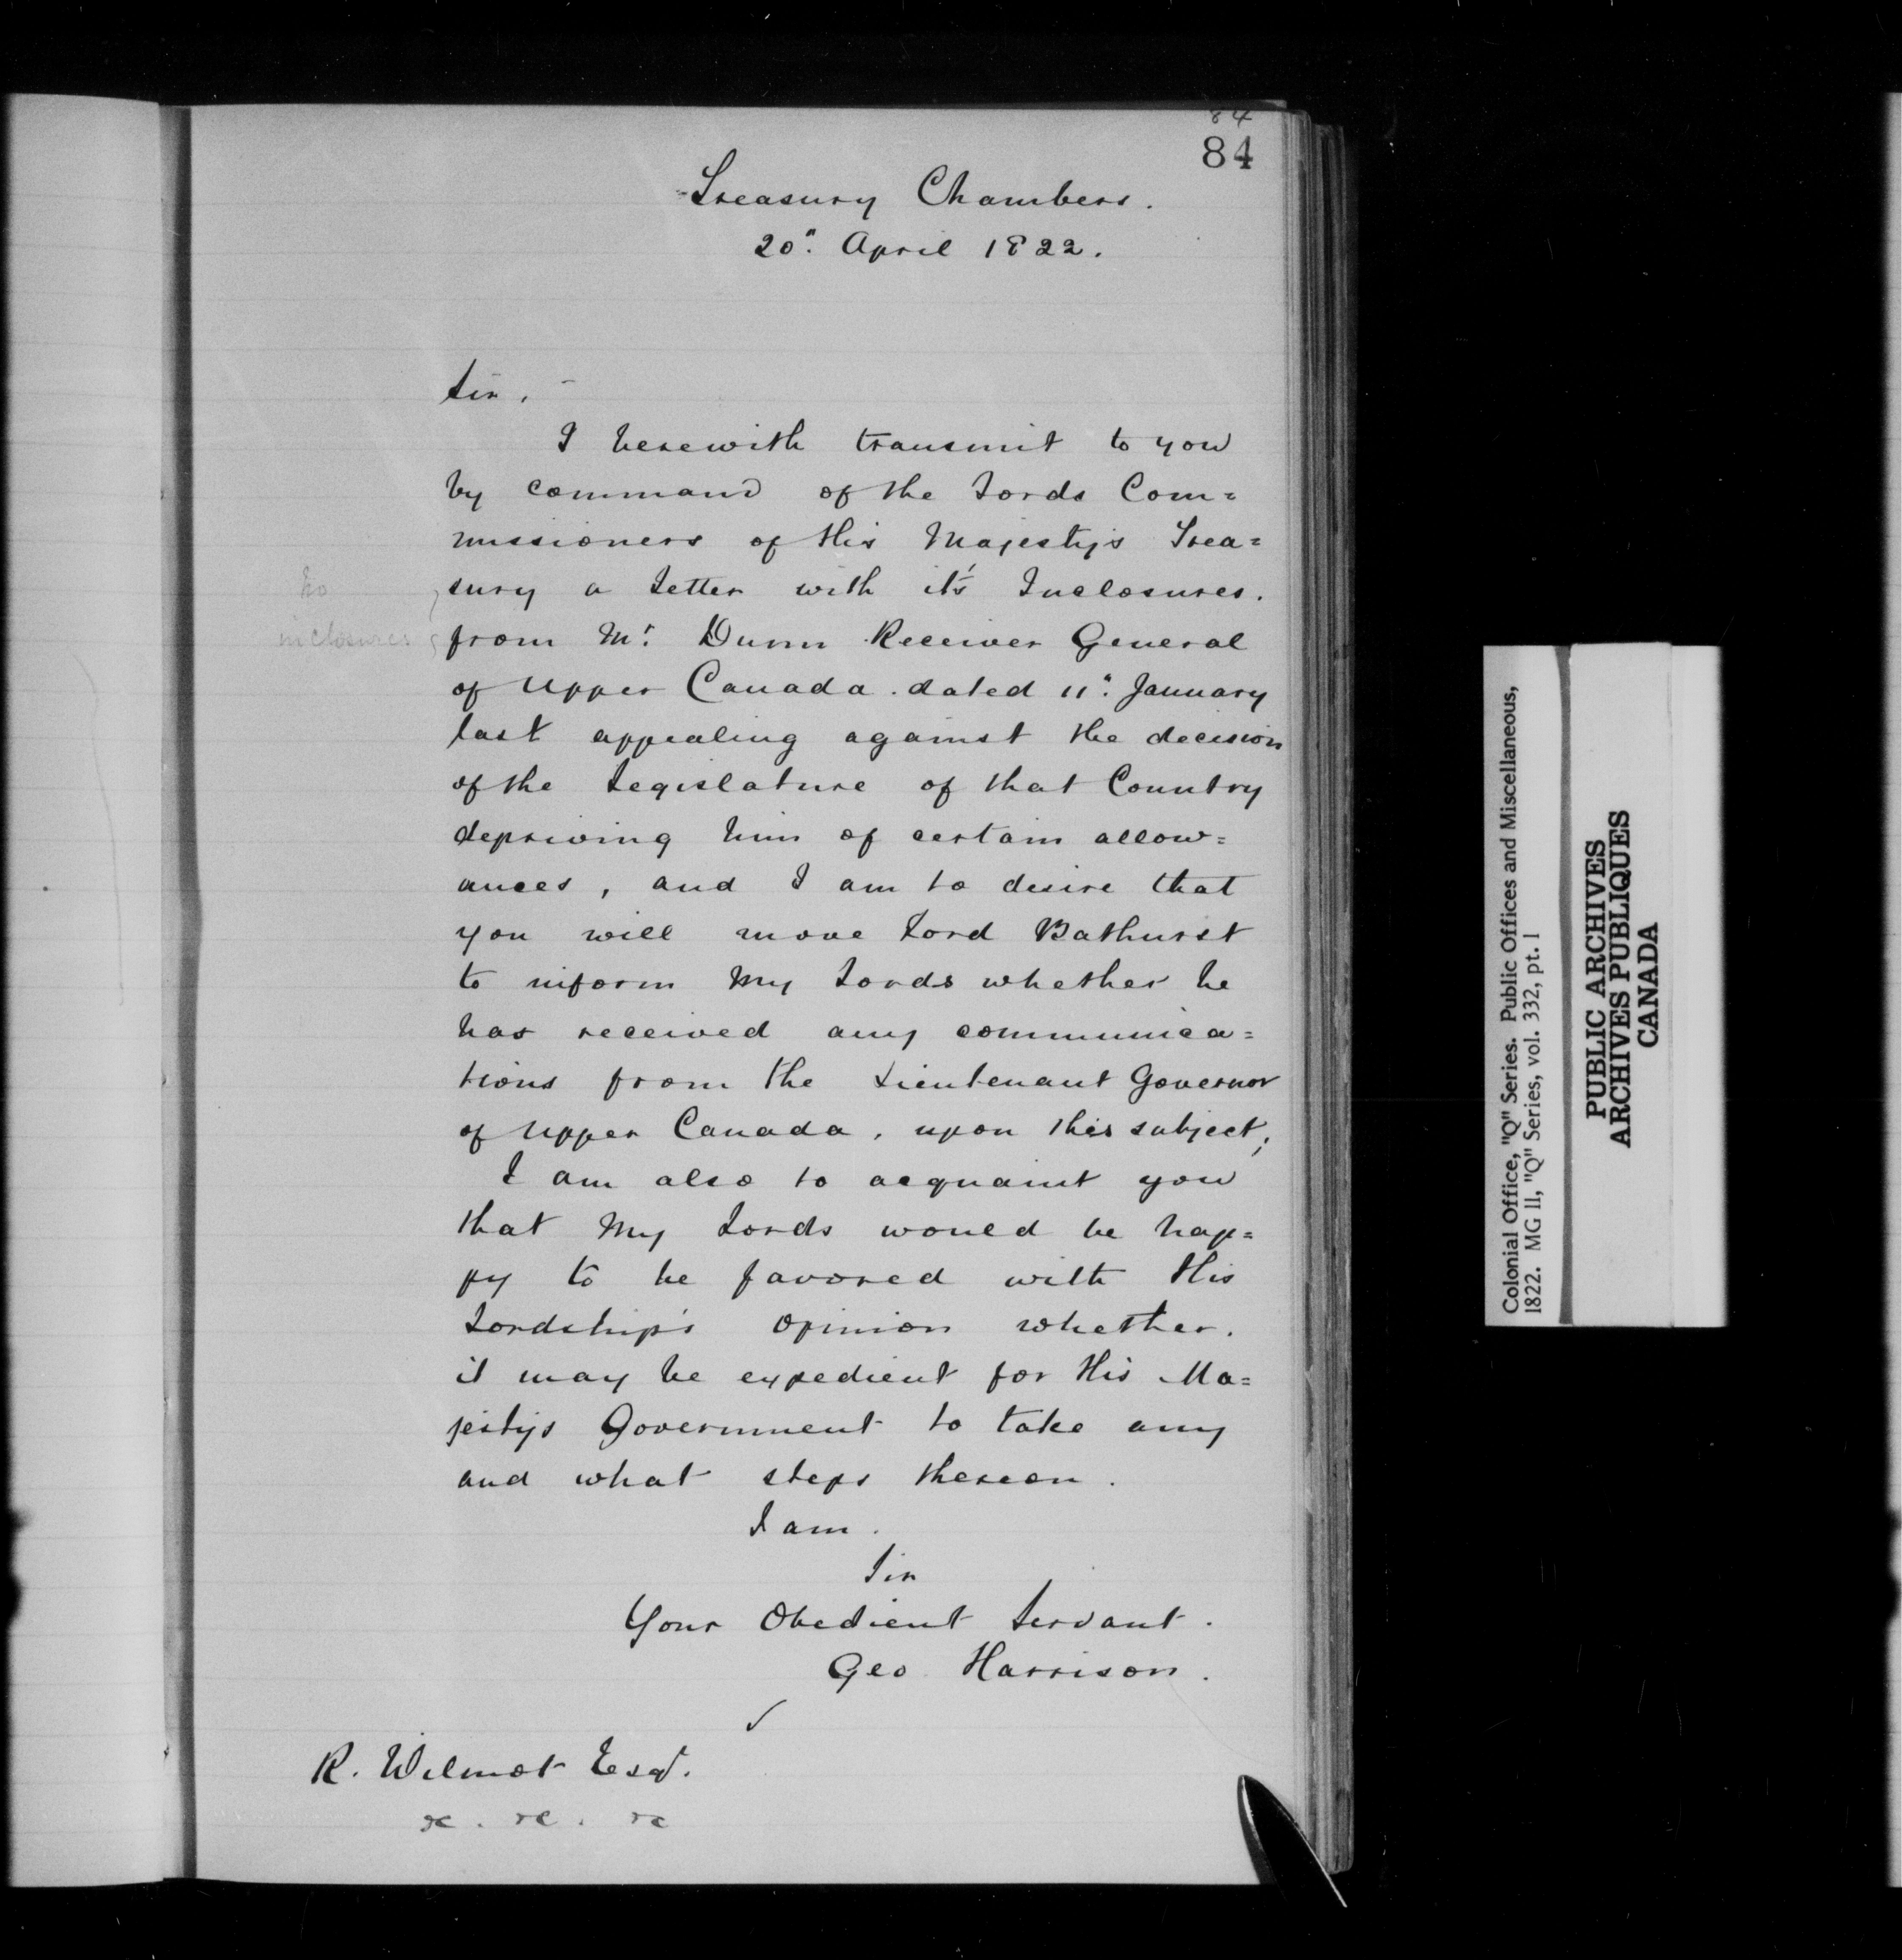 84
84
Treasury Chambers.
20". April 1822.
Sir,
I herewith transmit to you
by command of the Lords Com=
missioners of His Majesty's Trea=
sury a Letter with it's Inclosures.
no
inclosures
from Mr. Dunn Receiver General
of Upper Canada. dated 11". January
last appealing against the decision
of the Legislature of that Country
depriving him of certain allow=
ances, and I am to desire that
you will move Lord Bathurst
to inform My Lords whether he
has received any communica=
tions from the Lieutenant Governor
of Upper Canada, upon this subject;
I am also to acquaint you
that My Lords would be hap=
py to be favored with His
Lordship's opinion whether.
it may be expedient for His Ma=
jesty's Government to take any
and what steps thereon.
I am.
Sir
Your Obedient Servant.
Geo Harrison.
R. Wilmot Esqr.
&c. &c. &c
Colonial Office, "Q" Series. Public Offices and Miscellaneous,
1822. MG 11, "Q" Series, vol. 332, pt. 1
PUBLIC ARCHIVES
ARCHIVES PUBLIQUES
CANADA